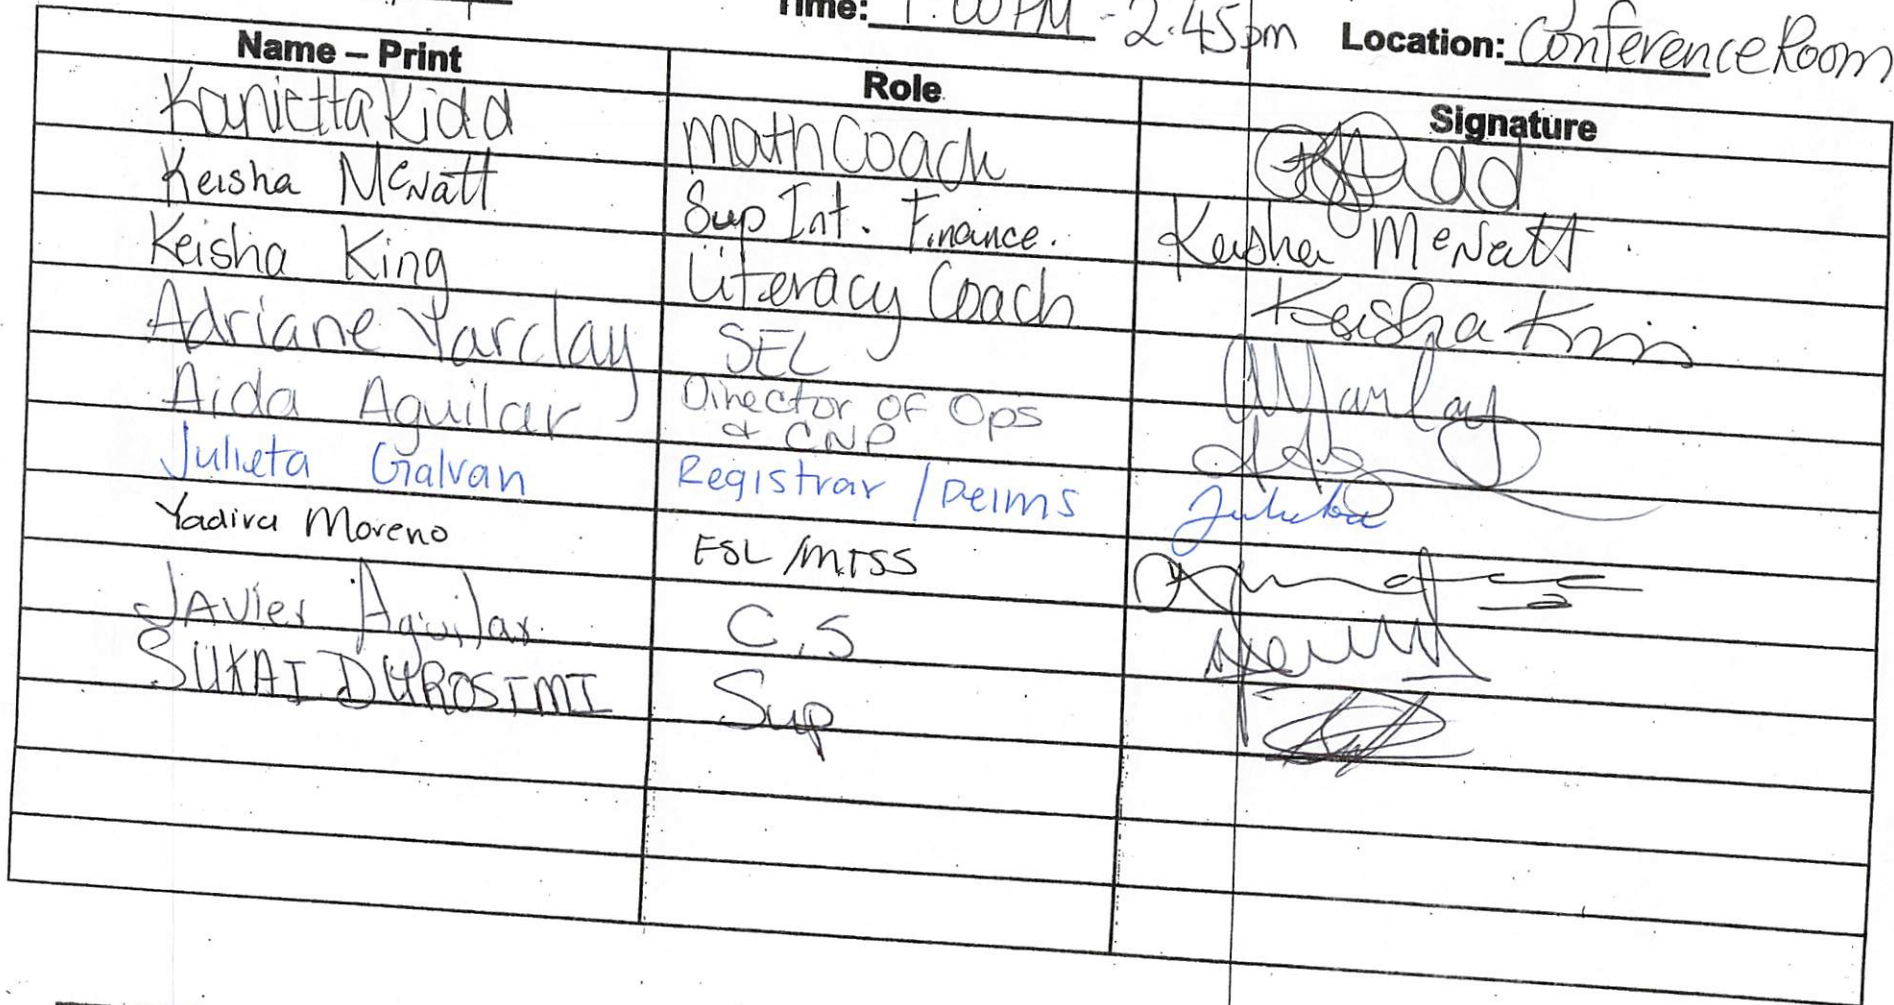 Time: 1:00 PM - 2:45pm Location: Conference Room
Name – Print Role Signature
Kanietta Kidd Math Coach
Keisha McNatt Sup Int. Finance. Keisha McNatt
Keisha King Literacy Coach Keisha King
Adriane Yarclay SEL AYarclay
Aida Aguilar Director of Ops
& CNP
Julieta Galvan Registrar / Peims Julieta
Yadira Moreno ESL/MTSS
Javier Aguilar C.S
SUKAI DUROSIMI Sup